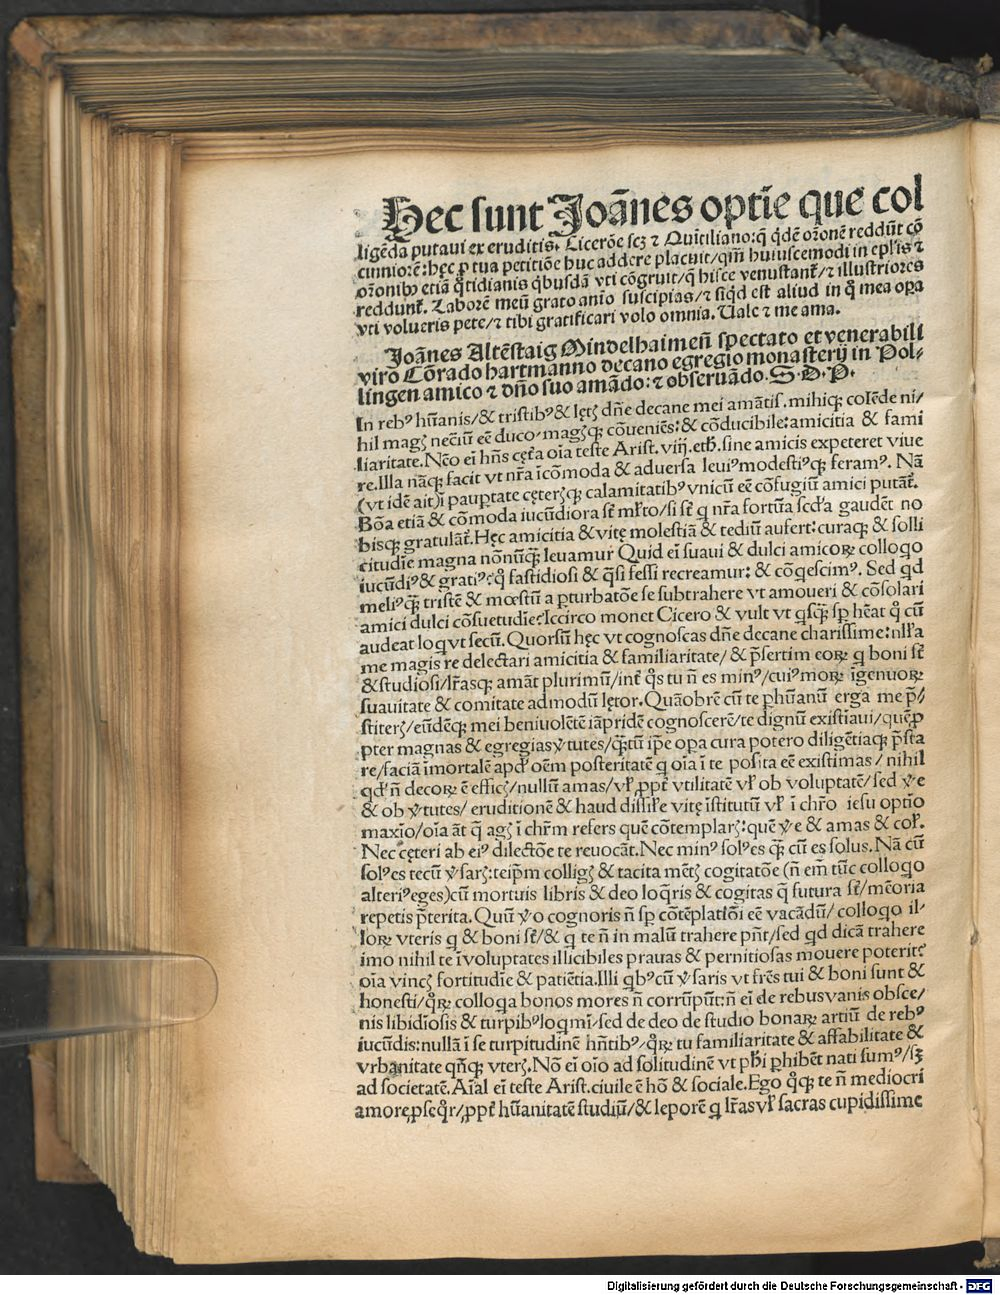 Hec sunt Joãnes optie que col
ligẽda putaui ex eruditis. Cicerõe scꝫ ⁊ Quĩtiliano: q̃ qdẽ orõnẽ reddũt cõ
cinniorẽ: hęc ꝓ tua petitiõe huc addere placuit/ qm̃ huiuscemodi in epl̃is ⁊
orõnibꝰ etiã q̃tidianis qbusdã vti cõgruit/ q̃ hisce venustant̃/ ⁊ illustriores
reddunt̃. Laborẽ meũ grato anĩo suscipias/ ⁊ siqd est aliud in q̊ mea oꝑa
vti volueris pete/ ⁊ tibi gratificari volo omnia. Uale ⁊ me ama.
Joãnes Altẽstaig Mindelhaimeñ spectato et venerabili
viro Cõrado hartmanno decano egregio monasterij in Pol-
lingen amico ⁊ dño suo amãdo: ⁊ obseruãdo. S. D. P.
In rebꝰ hũanis/ & tristibꝰ & lętꝭ dñe decane mei amãtis̃. mihiqꝫ colẽde ni/
hil magꝭ necr̃iũ eẽ duco/ magꝭqꝫ cõueniẽs: & cõducibile: amicitia & fami
liaritate. Nẽo eĩ hñs cęt̃a oĩa teste Arist. viij. eth. sine amicis expeteret viue
re. Illa nãqꝫ facit vt nr̃a ĩcõmoda & aduersa leuiꝰ modestiꝰqꝫ feramꝰ. Nã
(vt idẽ ait) ĩ pauꝑtate cęterꝭqꝫ calamitatibꝰ vnicũ eẽ cõfugiũ amici putãt̃.
Bõa etiã & cõmoda iucũdiora st̃ mł̃to/ si st̃ q nr̃a fortũa scđa gaudẽt no
bisqꝫ gratulãt̃. Hęc amicitia & vitę molestiã & tediũ aufert: curaqꝫ & solli
citudĩe magna nõnũqꝫ leuamur Quid eĩ suaui & dulci amicoꝝ colloqo
iucũdiꝰ & gratiꝰ? eq̊ fastidiosi & q̃si fessi recreamur: & cõqescimꝰ. Sed qd
meliꝰqꝫ tristẽ & mœstũ a ꝑturbatõe se subtrahere vt amoueri & cõsolari
amici dulci cõsuetudĩe? Iccirco monet Cicero & vult vt qsqꝫ sꝑ hẽat q̊ cũ
audeat loq vt secũ. Quorsũ hęc vt cognoscas dñe decane charissime: nłła
me magis re delectari amicitia & familiaritate/ & p̃sertim eoꝝ q boni st̃
& studiosi/ lr̃asqꝫ amãt plurimũ/ int̃ q̊s tu ñ es minꝰ/ cuiꝰ moꝝ ĩgenuoꝝ
suauitate & comitate admodũ lętor. Quãobrẽ cũ te ꝑhũanũ erga me p̃/
stiterꝭ/ eũdẽqꝫ mei beniuolẽtẽ iãpridẽ cognoscerẽ/ te dignũ existiaui/ quẽꝓ
pter magnas & egregias ṽtutes/ q̃tũ ip̃e oꝑa cura potero diligẽtiaqꝫ p̃sta
re/ faciã ĩmortalẽ apđ oẽm posteritatẽ q oĩa ĩ te posita eẽ existimas/ nihil
qđ ñ decoꝝ ẽ efficꝭ/ nullũ amas/ vł ꝓpt̃ vtilitatẽ vł ob voluptatẽ/ sed ṽe
& ob ṽtutes/ eruditionẽ & haud dissił̃e vitę ĩstitutũ vł ĩ chr̃o iesu optĩo
maxĩo/ oĩa ãt q̃ agꝭ ĩ chr̃m refers quẽ cõtemplarꝭ: quẽ ṽe & amas & coł.
Nec cęteri ab eiꝰ dilectõe te reuocãt. Nec minꝰ solꝰ es qꝫ cũ es solus. Nã cũ
solꝰ es tecũ ṽsarꝭ: teip̃m colligꝭ & tacita mẽtꝭ cogitatõe (ñ em̃ tũc colloqo
alteriꝰ eges) cũ mortuis libris & deo loqris & cogitas q̃ futura st̃/ mẽoria
repetis p̃terita. Quũ ṽo cognoris ñ sꝑ cõtẽplatiõi eẽ vacãdũ/ colloqo il-
loꝝ vteris q & boni st̃/ & q te ñ in malũ trahere pñt/ sed qd dicã trahere
imo nihil te ĩ voluptates illicibiles prauas & pernitiosas mouere poterit?
oĩa vincꝭ fortitudĩe & patiẽtia. Illi qbꝰcũ ṽsaris vt fr̃es tui & boni sunt &
honesti/ q̊ꝝ colloqa bonos mores ñ corrũpũt: ñ eĩ de rebus vanis obsce/
nis libidĩosis & turpibꝰ loqmĩ/ sed de deo de studio bonaꝝ artiũ de rebꝰ
iucũdis: nullã ĩ se turpitudinẽ hñtibꝰ/ q̊ꝝ tu familiaritate & affabilitate &
vrbanitate qñqꝫ vterꝭ. Nõ eĩ oĩo ad solitudinẽ vt phĩ ꝑhibẽt nati sumꝰ/ sꝫ
ad societatẽ. Aĩal eĩ teste Arist. ciuile ẽ hõ & sociale. Ego q̊qꝫ te ñ mediocri
amore ꝓseq̊r/ ꝓpt̃ hũanitatẽ studiũ/ & leporẽ q lr̃as vł sacras cupidissime
Digitalisierung gefördert durch die Deutsche Forschungsgemeinschaft - DFG